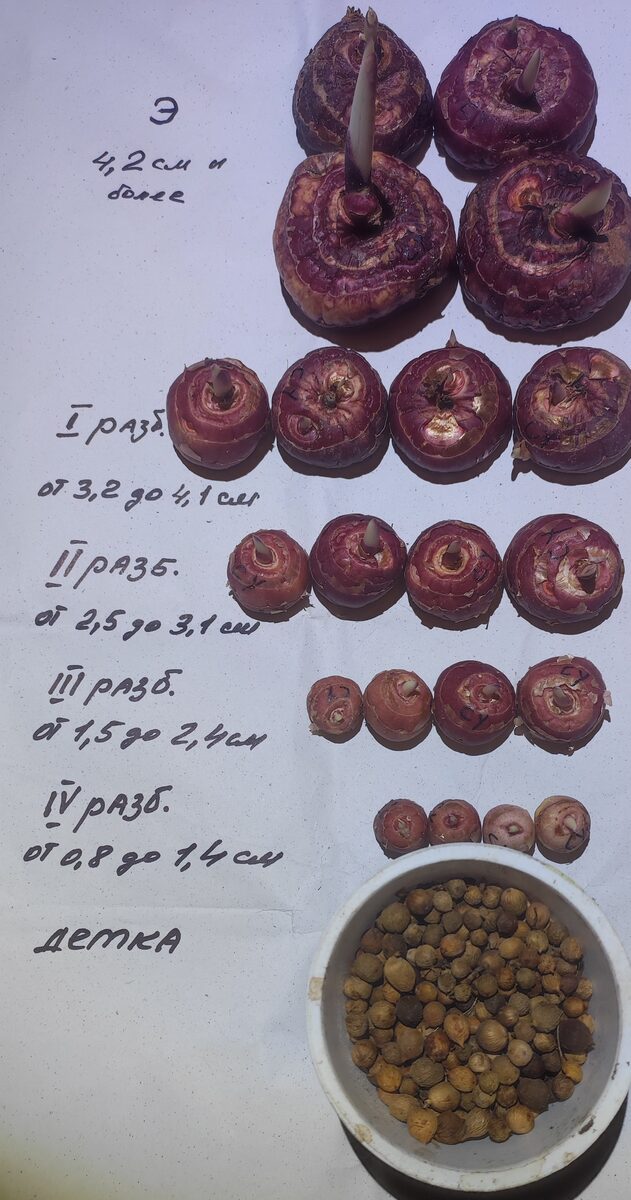 Э
4,2 см и
более
I разб.
от 3,2 до 4,1 см
II разб.
от 2,5 до 3,1 см
III разб.
от 1,5 до 2,4 см
IV разб.
от 0,8 до 1,4 см
ДЕТКА